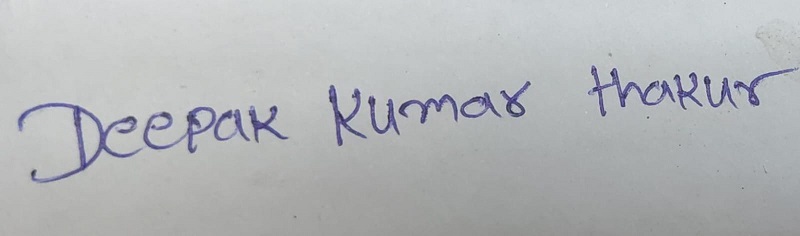 Deepak Kumar thakur